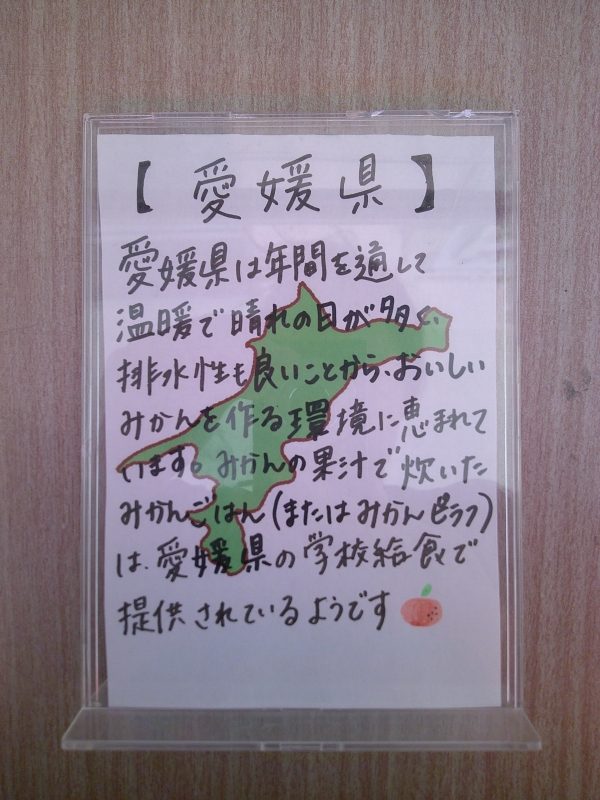 【愛媛県】
愛媛県は年間を通して
温暖で晴れの日が多く、
排水性も良いことから、おいしい
みかんを作る環境に恵まれて
います。みかんの果汁で炊いた
みかんごはん(またはみかんピラフ)
は、愛媛県の学校給食で
提供されているようです